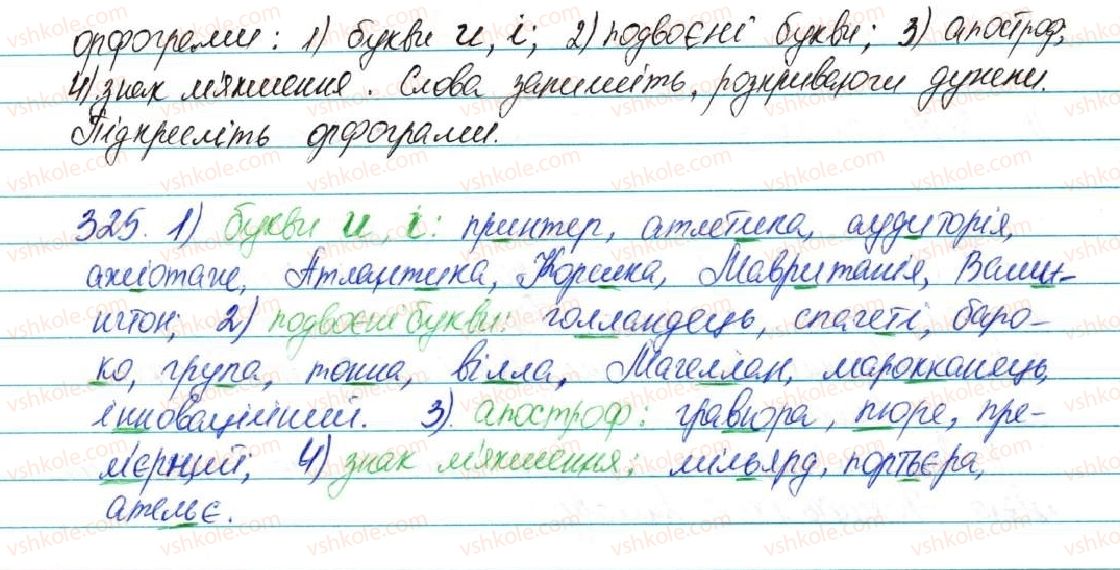 орфограми: 1) букви и, і; 2) подвоєні букви; 3) апостроф;
4) знак м'якшення. Слова запишіть, розкриваючи дужки.
Підкресліть орфограми.
325. 1) букви и, і: принтер, атлетика, аудиторія,
ажіотаж, Атлантика, Корсика, Мавританія, Вашин-
гтон; 2) подвоєні букви: голландець, спагеті, баро-
ко, група, тонна, вілла, Магеллан, марокканець,
інноваційний. 3) апостроф: гравюра, пюре, пре-
м'єрний; 4) знак м'якшення; мільярд, портьєра,
ательє.
vshkole.com